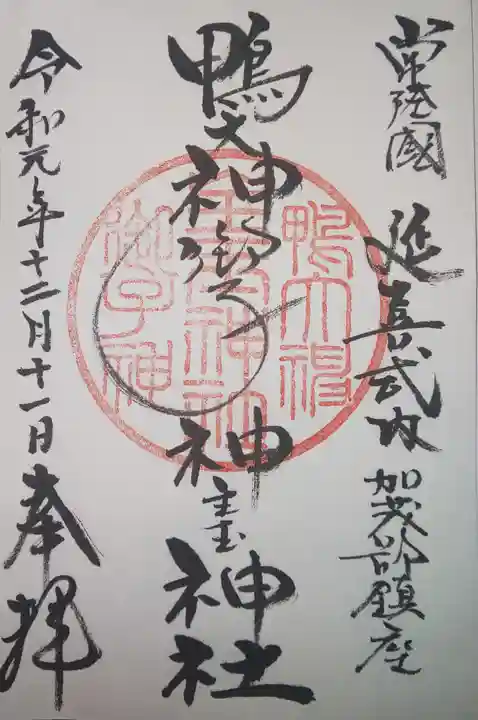 常陸國 延喜式内 加茂部鎮座
鴨大神御子神主玉神社
令和元年十二月十一日 奉拝
鴨大神
御子神
主玉神社